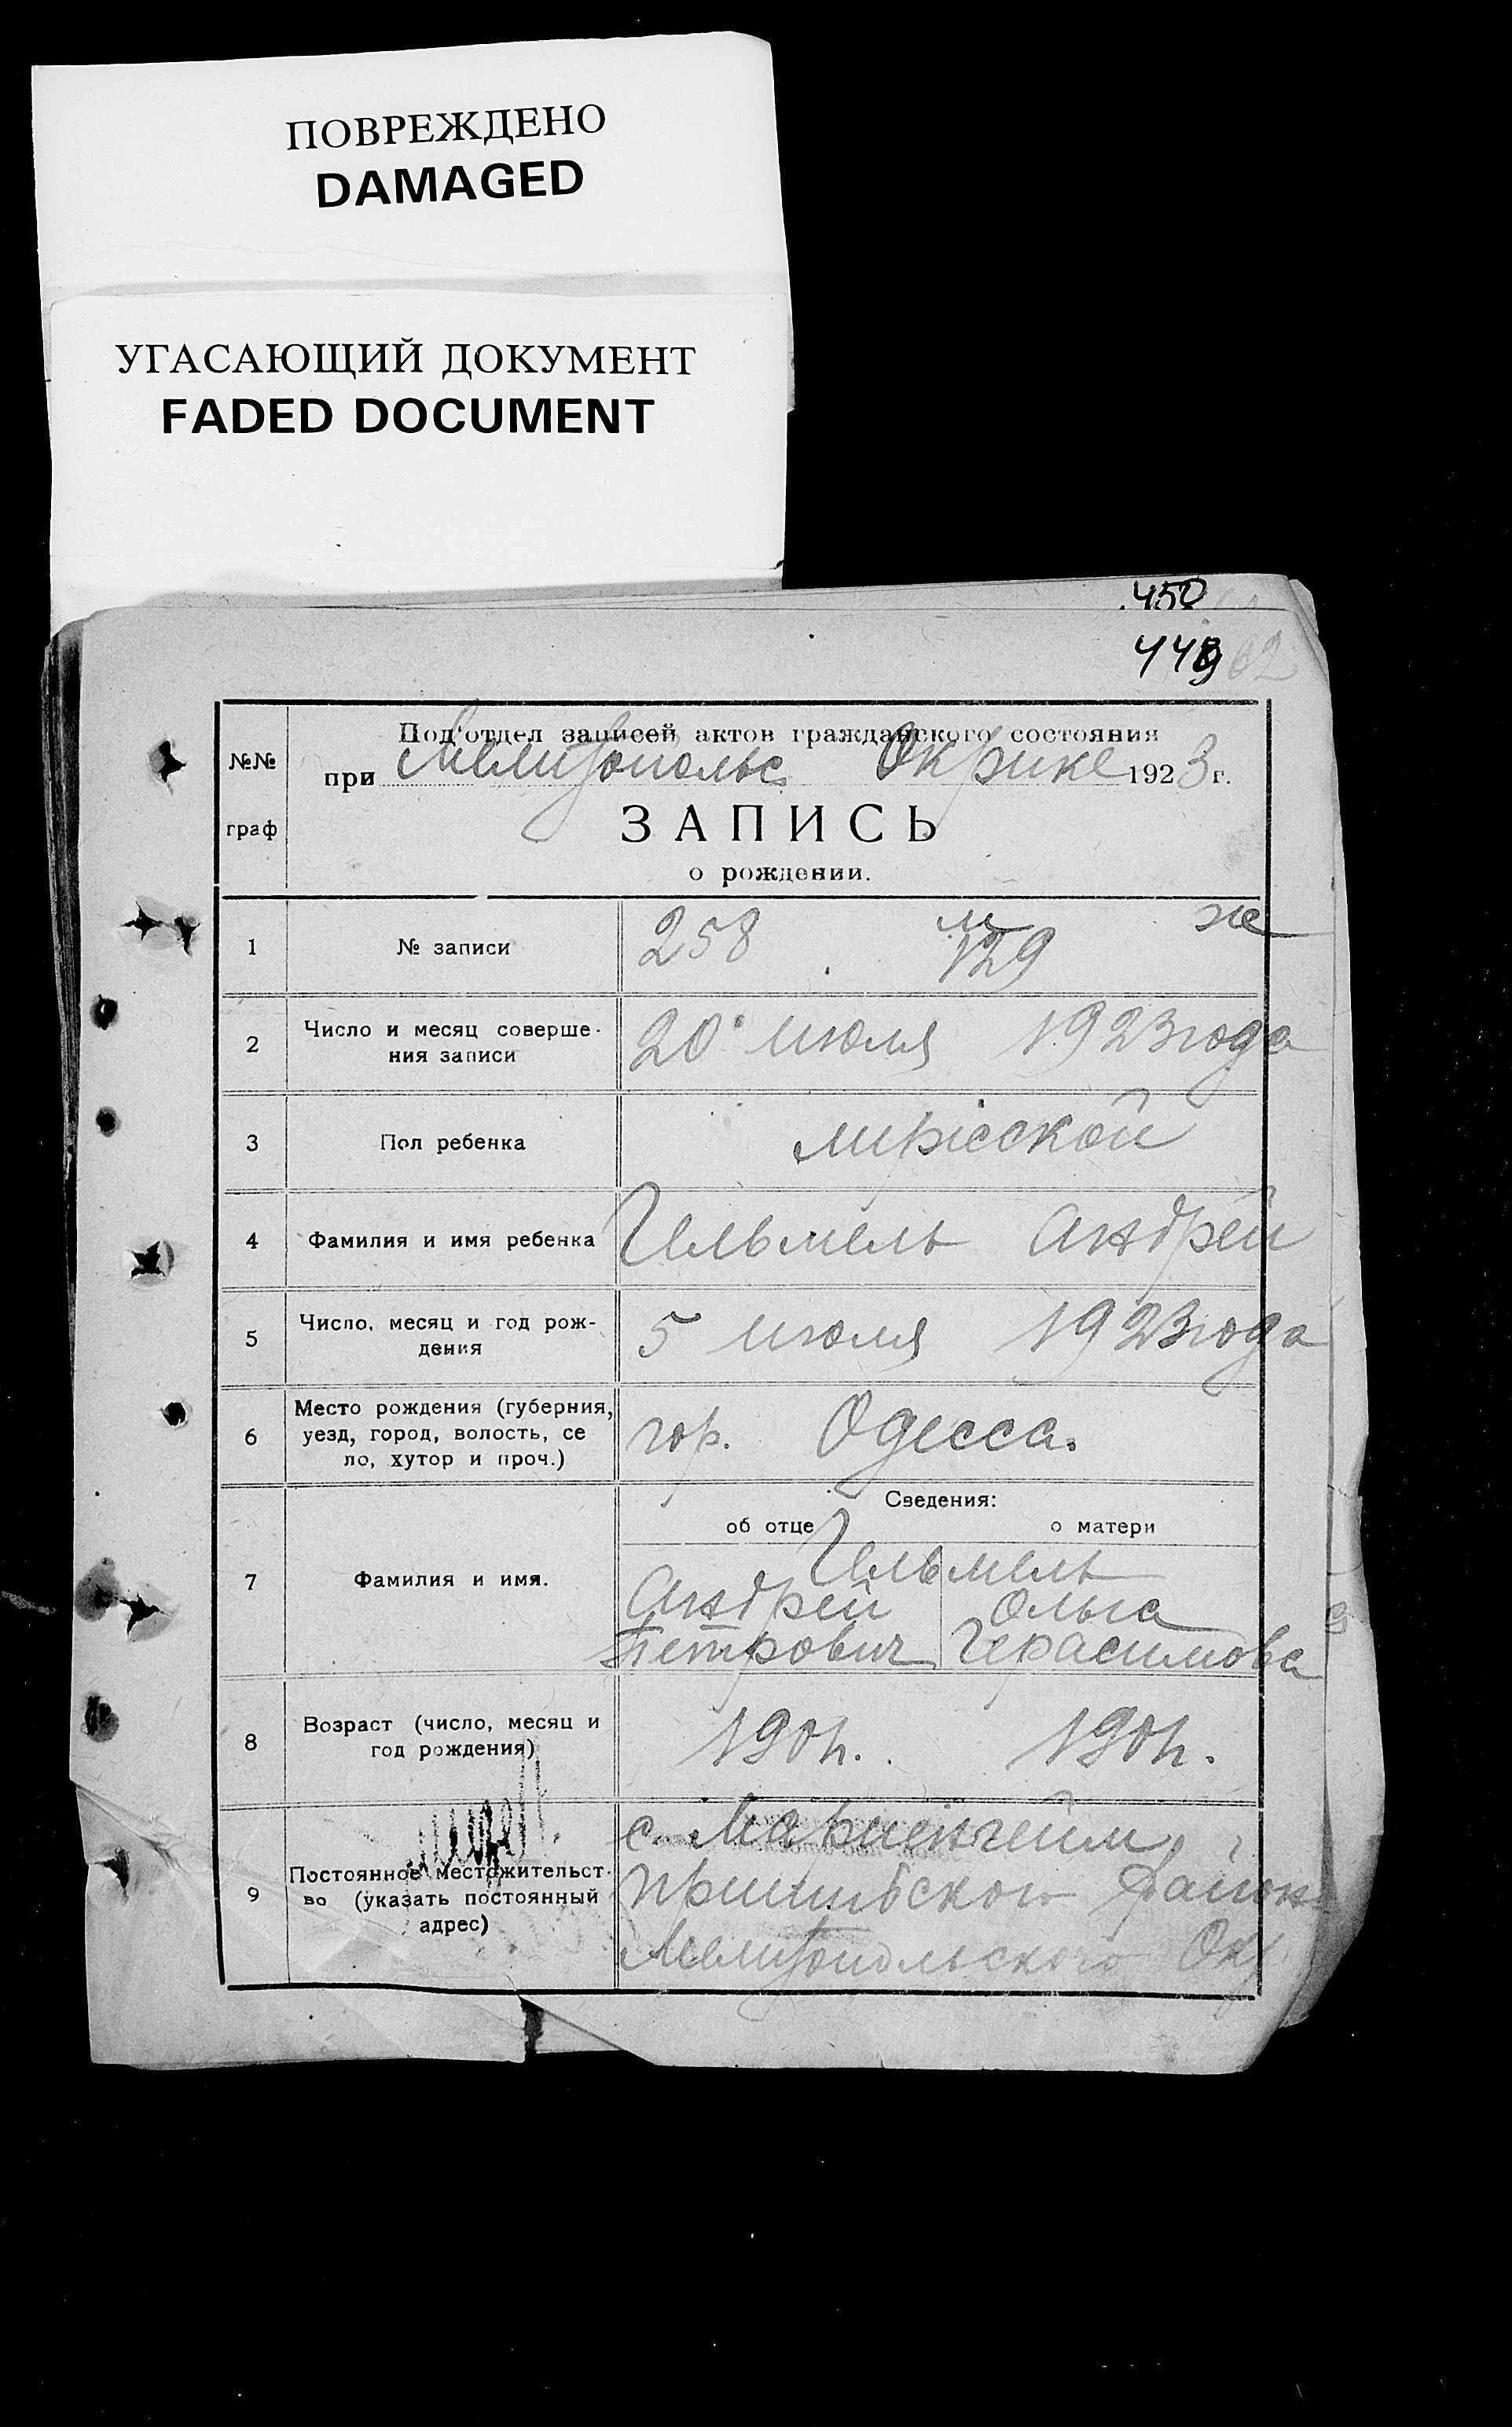 ПОВРЕЖДЕНО
DAMAGED
УГАСАЮЩИЙ ДОКУМЕНТ
FADED DOCUMENT
450
449
№№ граф
Под'отдел записей актов гражданского состояния
при Мелитопольс. Окрике 1923 г.
ЗАПИСЬ
о рождении.
1 № записи 258 м 129 же
2 Число и месяц соверше-
ния записи 20 июля 1923 года
3 Пол ребенка мужеской
4 Фамилия и имя ребенка Гельмель Андрей
5 Число, месяц и год рож-
дения 5 июля 1923 года
6 Место рождения (губерния,
уезд, город, волость, се
ло, хутор и проч.) гор. Одесса.
Сведения:
об отце о матери
7 Фамилия и имя. Гельмель
Андрей Ольга
Петрович Герасимова
8 Возраст (число, месяц и
год рождения) 1901г. 1901г.
9 Постоянное местожительст-
во (указать постоянный
адрес) с. Мариенгейм,
Пришибского Район
Мелитопольского Окр